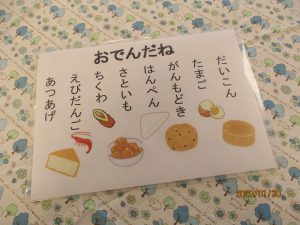 おでんだね
だいこん
たまご
がんもどき
はんぺん
さといも
ちくわ
えびだんご
あつあげ